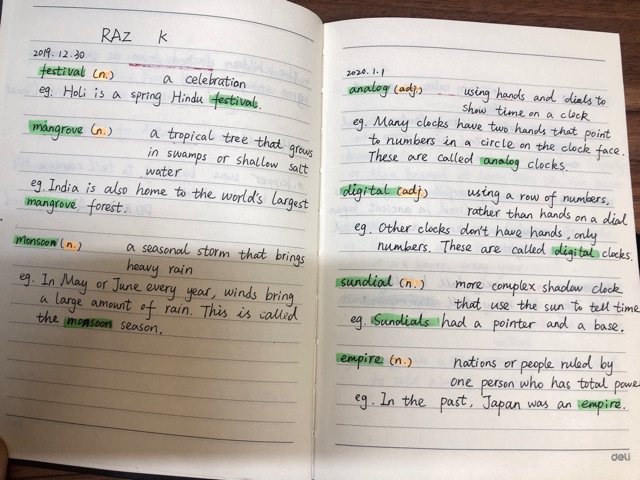 RAZ K
2019.12.30
festival (n.) a celebration
eg. Holi is a spring Hindu festival.
mangrove (n.) a tropical tree that grows
in swamps or shallow salt
water
eg. India is also home to the world's largest
mangrove forest.
monsoon (n.) a seasonal storm that brings
heavy rain
eg. In May or June every year, winds bring
a large amount of rain. This is called
the monsoon season.
2020.1.1
analog (adj.) using hands and dials to
show time on a clock
eg. Many clocks have two hands that point
to numbers in a circle on the clock face.
These are called analog clocks.
digital (adj.) using a row of numbers,
rather than hands on a dial
eg. Other clocks don't have hands, only
numbers. These are called digital clocks.
sundial (n.) more complex shadow clock
that use the sun to tell time
eg. Sundials had a pointer and a base.
empire (n.) nations or people ruled by
one person who has total power
eg. In the past, Japan was an empire.
deli